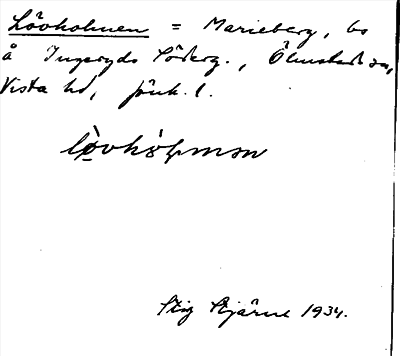 Lövholmen = Marieberg, bs
å Ingeryds Söderg., Ölmstad sn,
Vista hd, Jönk. l.
lòvhòḷmən
Stig Stjärne 1934.